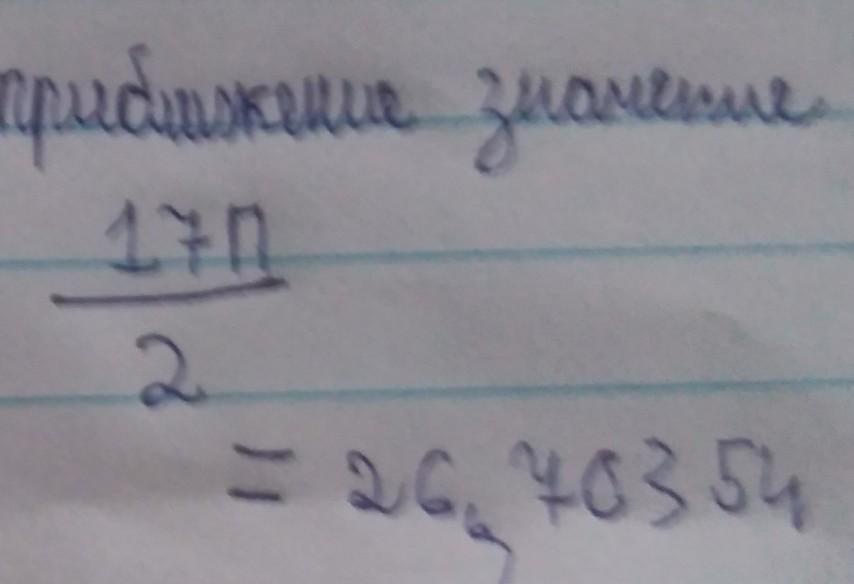 приближение значение
17П
2
= 26,70354